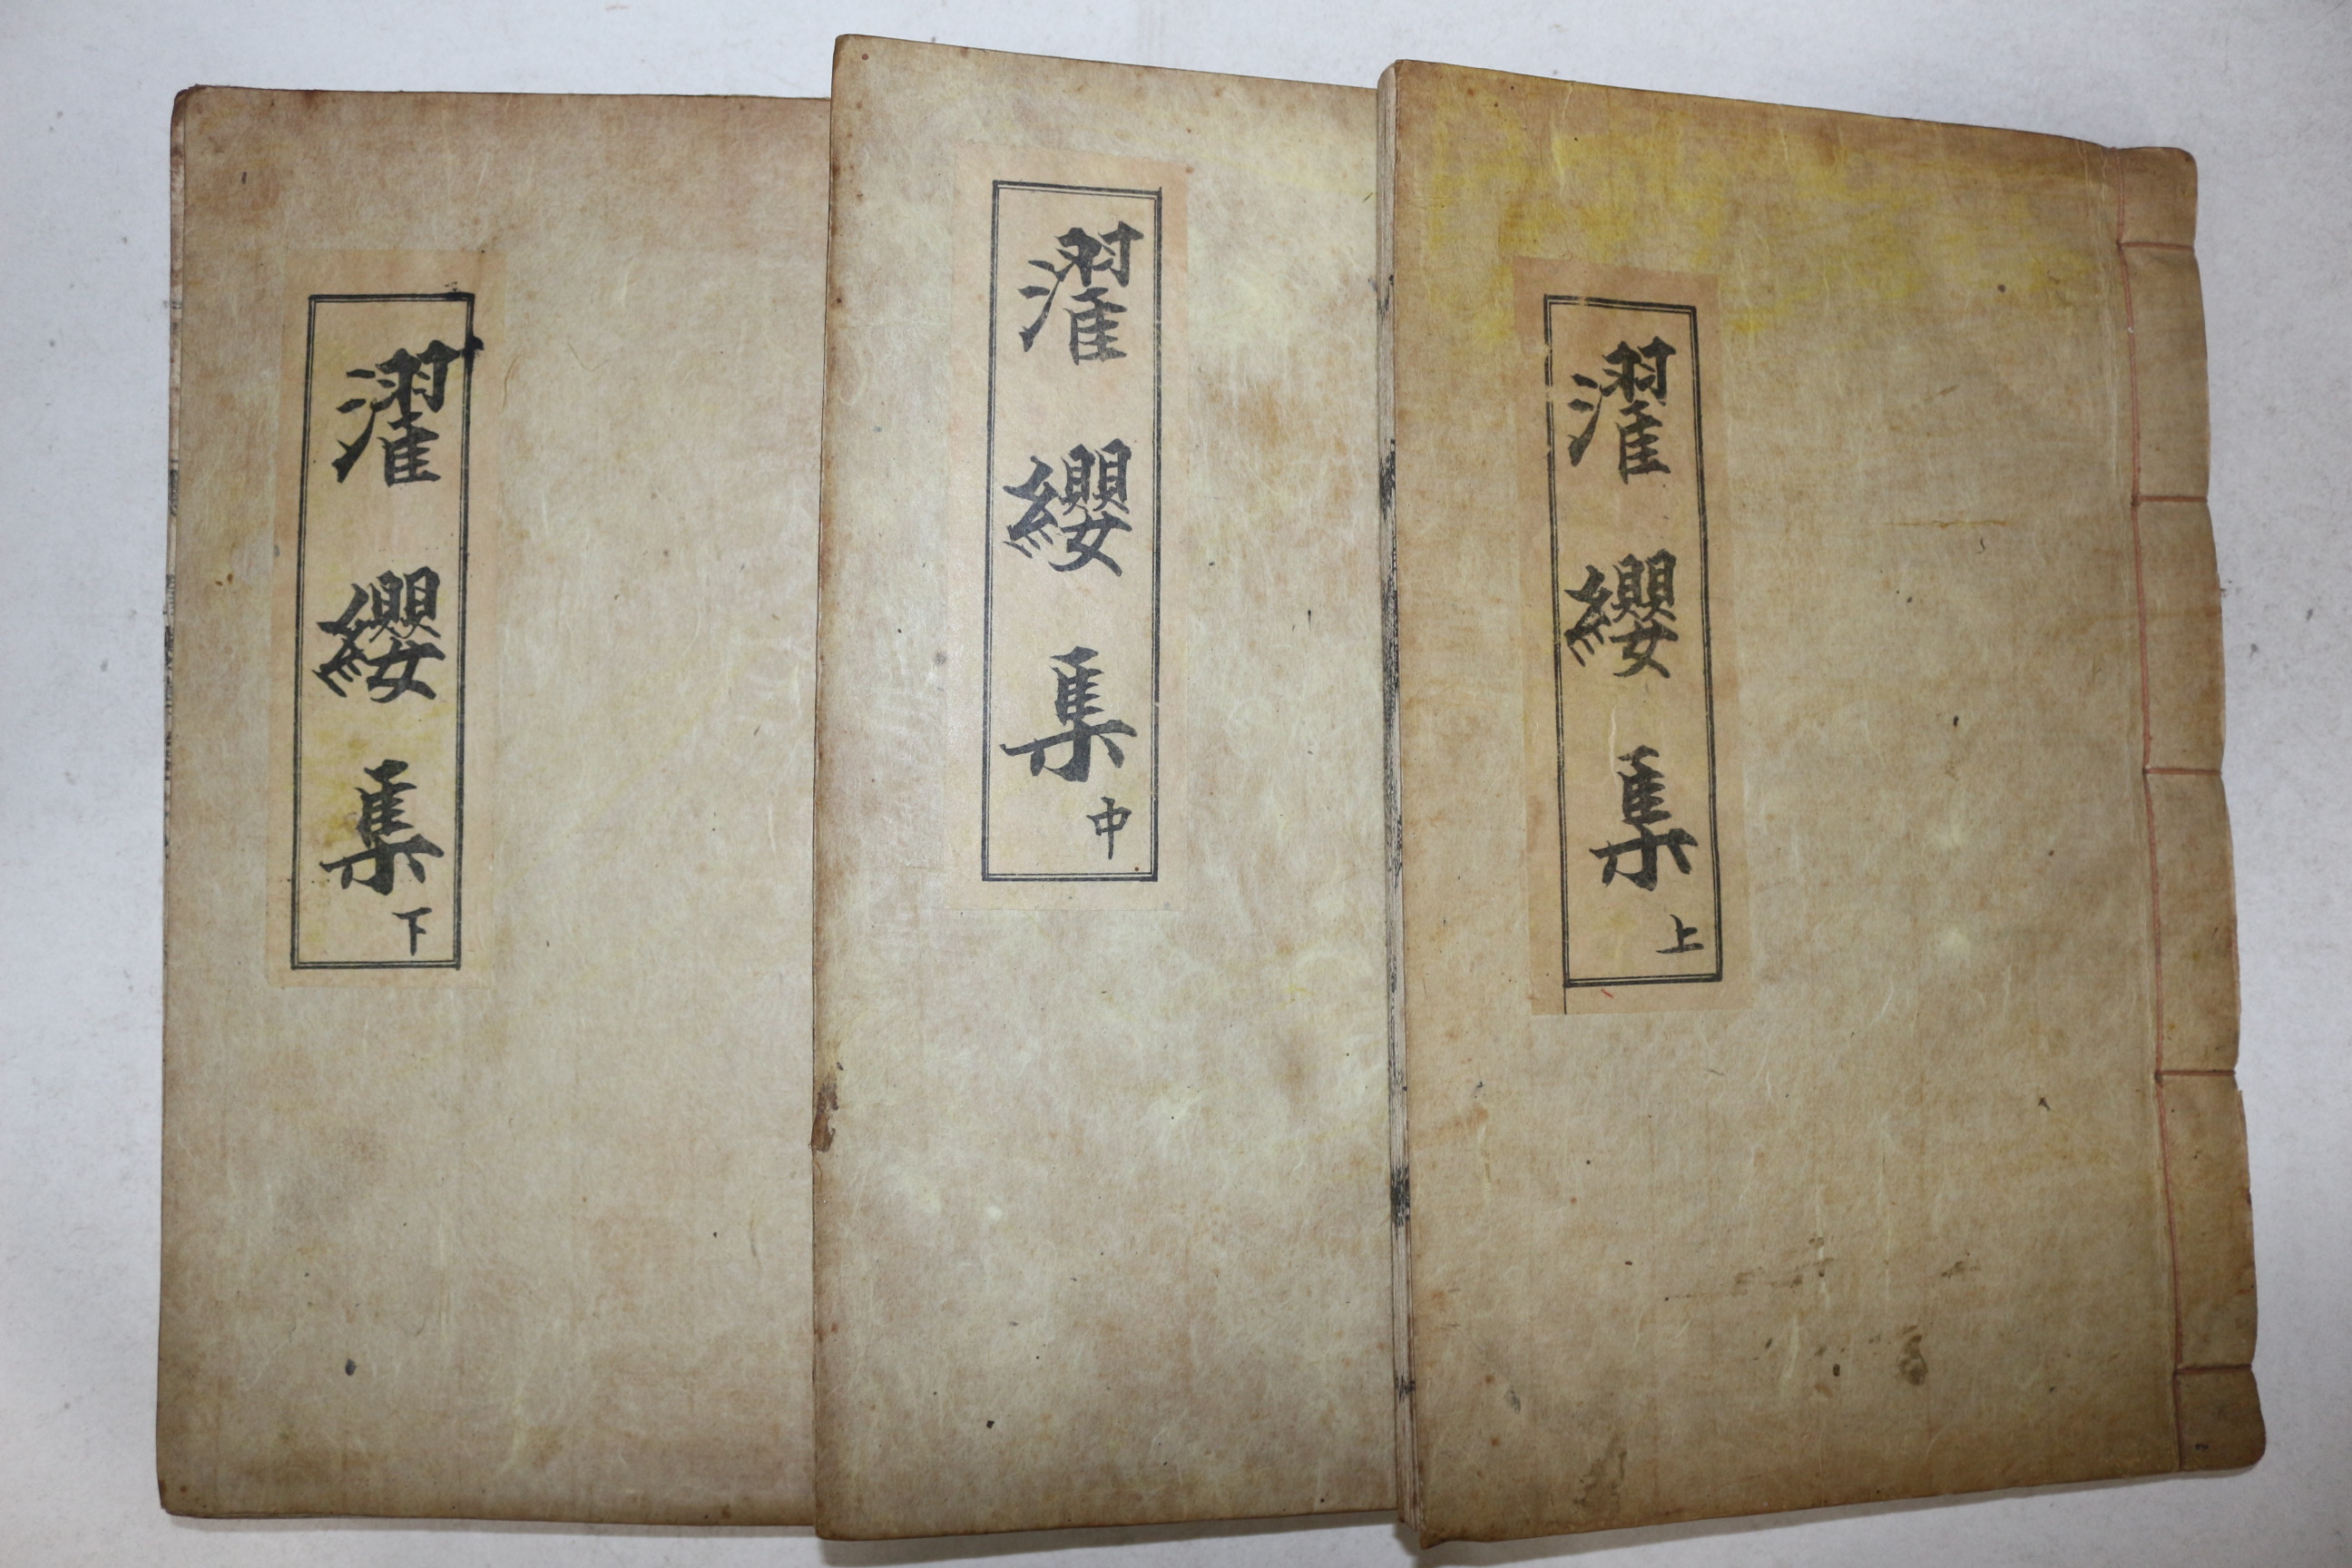 濯纓集 上
濯纓集 中
濯纓集 下